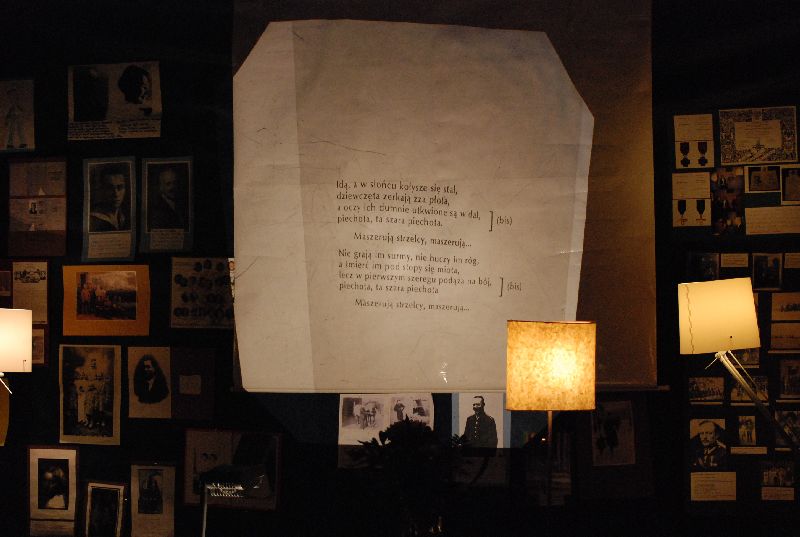 Idą, a w słońcu kołysze się stal,
dziewczęta zerkają zza płota,
a oczy ich dumnie utkwione są w dal,
piechota, ta szara piechota.
(bis)
Maszerują strzelcy, maszerują...
Nie grają im surmy, nie huczy im róg,
a śmierć im pod stopy się miota,
lecz w pierwszym szeregu podąża na bój,
piechota, ta szara piechota.
(bis)
Maszerują strzelcy, maszerują...